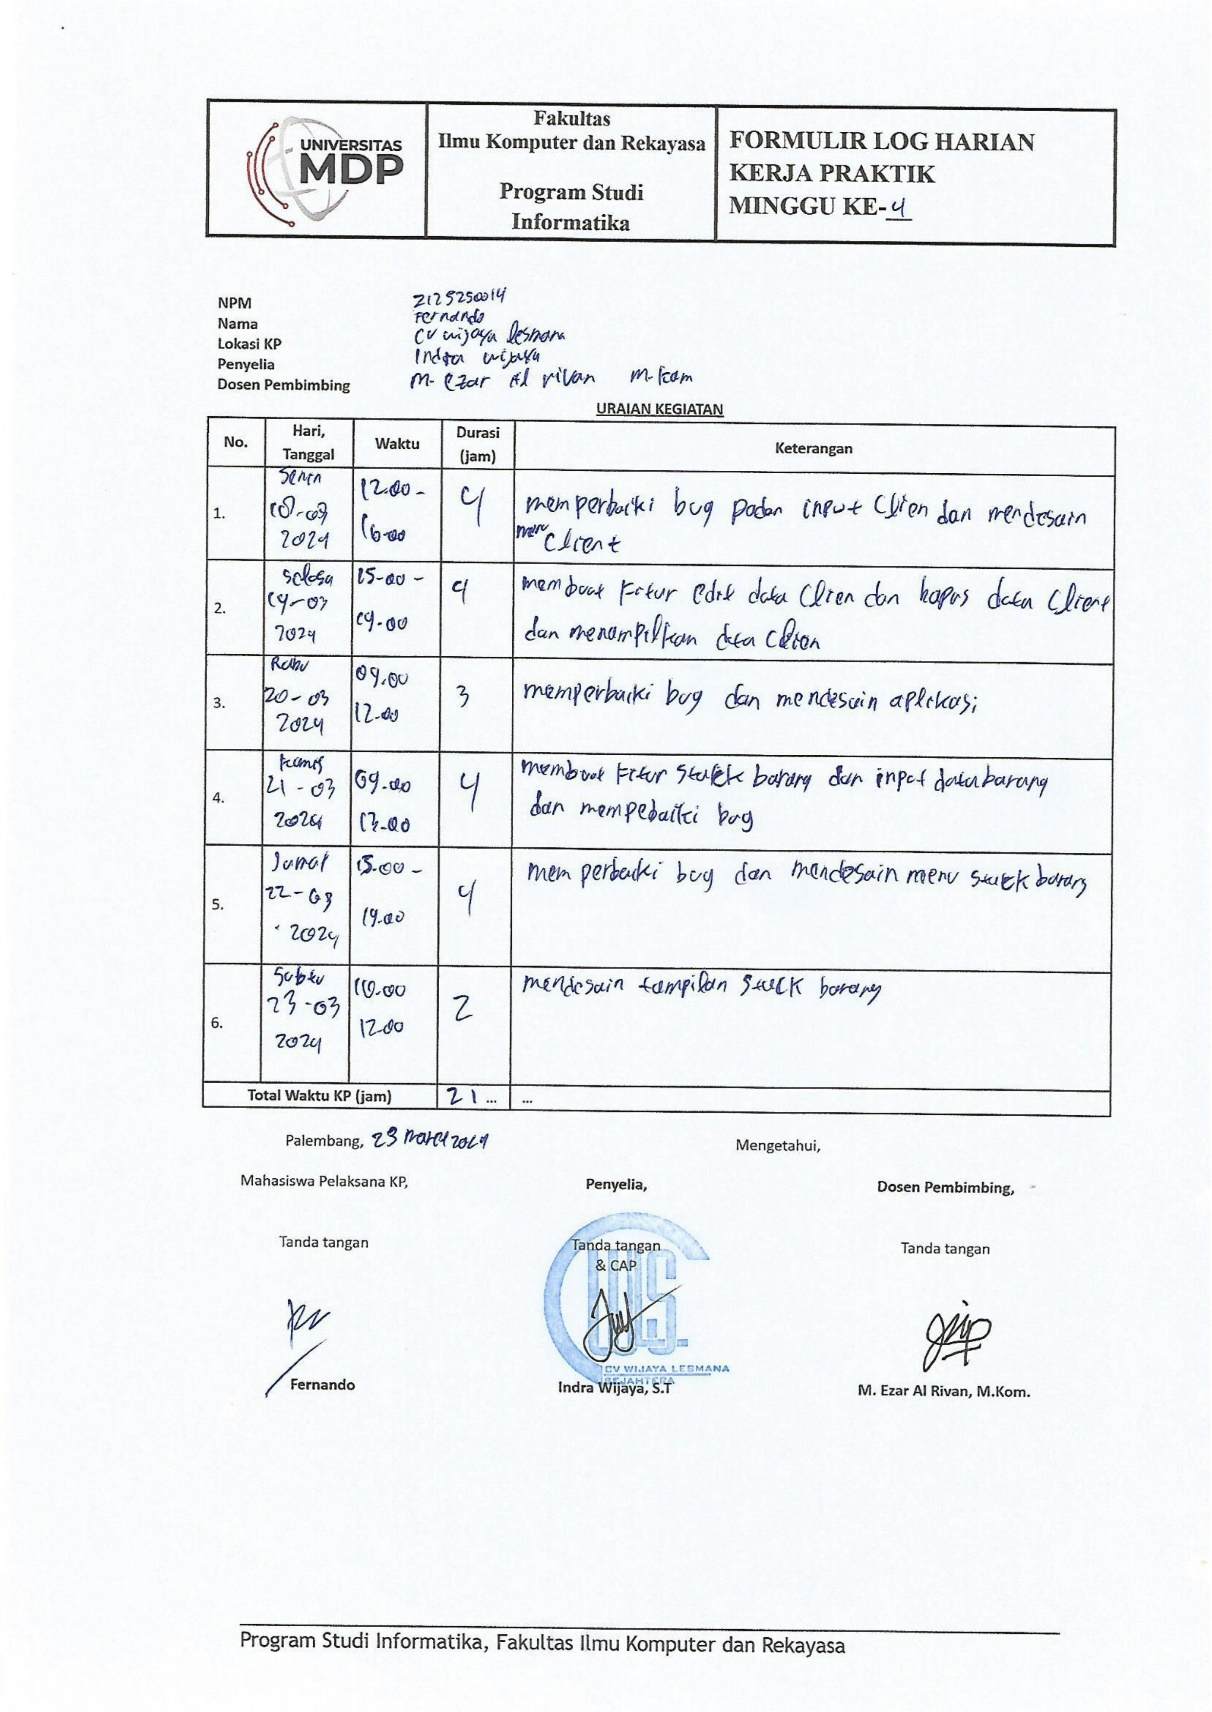 UNIVERSITAS
MDP
Fakultas
Ilmu Komputer dan Rekayasa
Program Studi
Informatika
FORMULIR LOG HARIAN
KERJA PRAKTIK
MINGGU KE-4
NPM 2125250014
Nama Fernando
Lokasi KP CV wijaya lesmana
Penyelia Indra wijaya
Dosen Pembimbing M. Ezar Al rivan M.kom
URAIAN KEGIATAN
No. Hari, Tanggal Waktu Durasi (jam) Keterangan
1. Senin 18-03 2024 12.00 - 16.00 4 memperbaiki bug padan input Clien dan mendesain
menu Client
2. Selasa 19-03 2024 15-00 - 19.00 4 membuat Fitur edit data Clien dan hapus data Client
dan menampilkan data Clien
3. Rabu 20-03 2024 09.00 12.00 3 memperbaiki bug dan mendesain aplikasi
4. kamis 21-03 2024 09.00 13.00 4 membuat Fitur stock barang dan input data barang
dan mempebaiki bug
5. Jumat 22-03 2024 15.00 - 19.00 4 memperbaiki bug dan mendesain menu stock barang
6. Sabtu 23-03 2024 10.00 12.00 2 mendesain tampilan stock barang
Total Waktu KP (jam) 21 ... ...
Palembang, 23 maret 2024
Mengetahui,
Mahasiswa Pelaksana KP, Penyelia, Dosen Pembimbing,
Tanda tangan Tanda tangan & CAP Tanda tangan
CV WIJAYA LESMANA
SEJAHTERA
Fernando Indra Wijaya, S.T M. Ezar Al Rivan, M.Kom.
Program Studi Informatika, Fakultas Ilmu Komputer dan Rekayasa